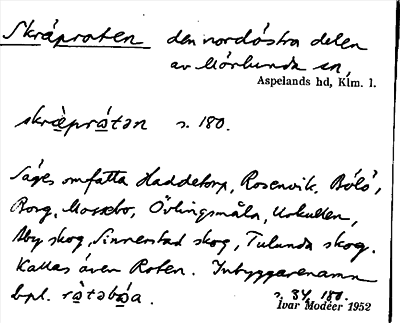 Skräproten den nordöstra delen
av Mörlunda sn,
Aspelands hd, Klm. l.
skrὰprὼtən s. 180.
Säges omfatta Haddetorp, Rosenvik, Bölö,
Borg, Mossebo, Övlingsmåla, Uvkullen,
Åby skog, Sinnerstad skog, Tulunda skog.
Kallas även Roten. Inbyggarenamn
bpl. rὼtəbὼa. s. 84, 180.
Ivar Modéer 1952